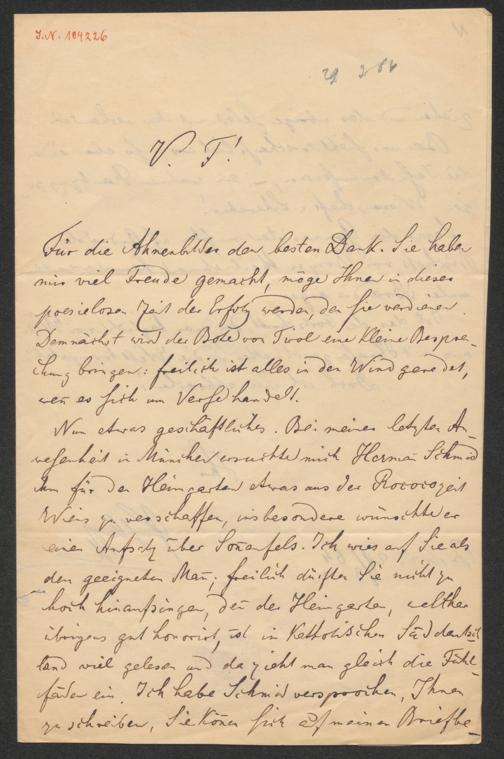 I.N. 184226
29 3 64
V. F!
Für die Ahnenbilder den besten Dank. Sie haben
mir viel Freude gemacht, möge Ihnen in dieser
poesielosen Zeit der Erfolg werden, den sie verdienen.
Demnächst wird der Bote von Tirol eine kleine Bespre-
chung bringen: freilich ist alles in den Wind geredet,
wen es sich um Verse handelt.
Nun etwas geschäftliches. Bei meiner letzten An-
wesenheit in München ersuchte mich Herman Schmid
ihm für den Heimgarten etwas aus der Rococozeit
Wiens zu verschaffen, insbesondere wünschte er
einen Aufsatz über Sonenfels. Ich wies auf Sie als
den geeigneten Man; freilich dürften Sie nicht zu
hoch hinaufsingen, den der Heimgarten, welcher
übrigens gut honorirt, ist in Katholischen Süddeutsch
land viel gelesen und da zieht man gleich die Fühl-
fäden ein. Ich habe Schmid versprochen, Ihnen
zu schreiben, Sie könen sich auf meinen Briefbe-